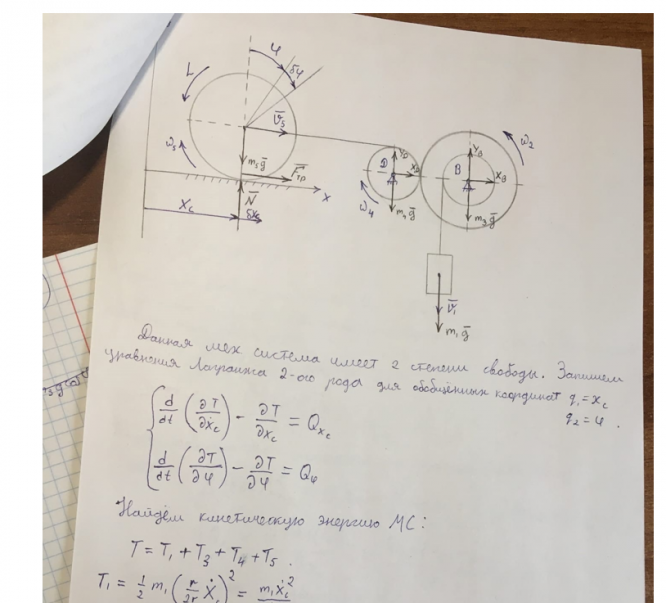 φ
δφ
L
V̄₅
ω₂
ω₅
m₅ḡ
F̄тр
D
Y_D
X_D
Y_B
B
X_B
N̄
x
ω₄
m₄ḡ
m₃ḡ
X_c
δX_c
V̄₁
m₁ḡ
Данная мех система имеет 2 степени свободы. Запишем
уравнения Лагранжа 2-ого рода для обобщённых координат q₁ = x_c
q₂ = φ.
d/dt (∂T/∂ẋ_c) − ∂T/∂x_c = Q_{x_c}
d/dt (∂T/∂φ̇) − ∂T/∂φ = Q_φ
Найдём кинетическую энергию МС:
T = T₁ + T₃ + T₄ + T₅.
T₁ = 1/2 m₁ (r/2r Ẋ_c)² = m₁ẋ_c²